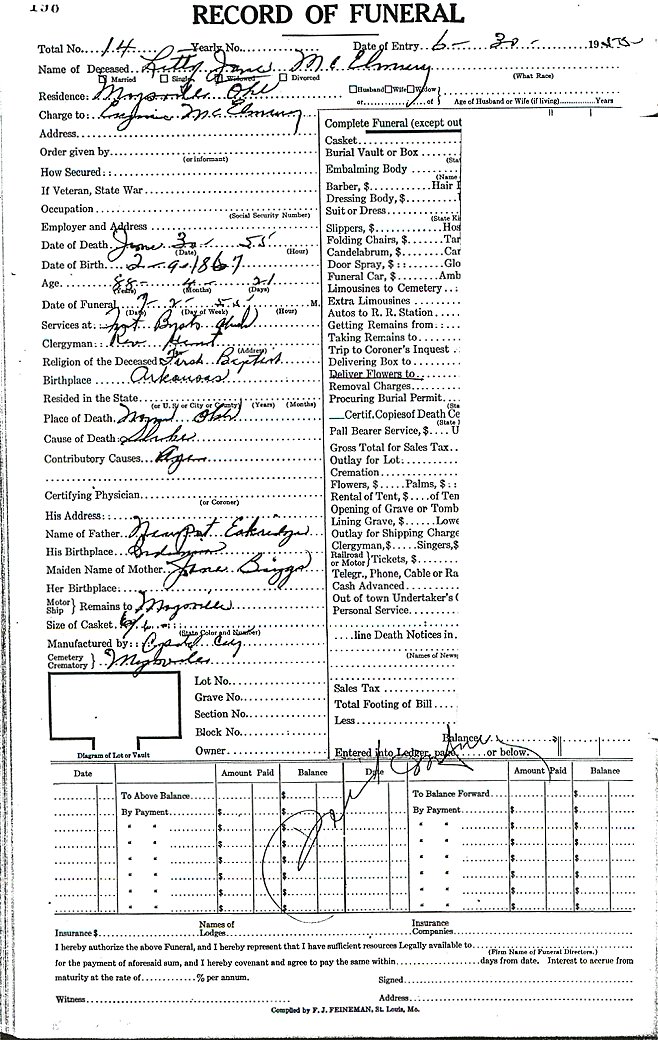 RECORD OF FUNERAL
Total No. 14 Yearly No. Date of Entry 6- 30- 1955
Name of Deceased Jane McElmurry
Married Single Widowed Divorced (What Race)
Residence: Maysville Okl Husband Wife Widow
or of Age of Husband or Wife (if living) Years
Charge to: McElmurry
Address
Order given by
(or informant)
How Secured:
If Veteran, State War
Occupation
(Social Security Number)
Employer and Address
Date of Death June 30 - 55
(Date) (Hour)
Date of Birth 2-9-1867
Age 88- 4- 21
(Years) (Months) (Days)
Date of Funeral 7- 2- 55 M.
(Date) (Day of Week) (Hour)
Services at: Bapt
Clergyman: Rev
(Address)
Religion of the Deceased First Baptist
Birthplace Arkansas
Resided in the State
(or U. S. or City or County) (Years) (Months)
Place of Death
Cause of Death: Stroke
Contributory Causes Age
Certifying Physician
(or Coroner)
His Address:
Name of Father Eskridge
His Birthplace
Maiden Name of Mother Jane Biggs
Her Birthplace
Motor Ship } Remains to Maysville
Size of Casket
(State Color and Number)
Manufactured by: Capitol City
Cemetery Crematory } Maysville
Diagram of Lot or Vault
Lot No.
Grave No.
Section No.
Block No.
Owner
Complete Funeral (except out
Casket
Burial Vault or Box
(Sta
Embalming Body
(Name
Barber, $ Hair
Dressing Body, $
Suit or Dress
(State Ki
Slippers, $ Hos
Folding Chairs, $ Tar
Candelabrum, $ Car
Door Spray, $ Glo
Funeral Car, $ Amb
Limousines to Cemetery
Extra Limousines
Autos to R. R. Station
Getting Remains from:
Taking Remains to
Trip to Coroner's Inquest
Delivering Box to
Deliver Flowers to
Removal Charges
Procuring Burial Permit
(Sta
Certif. Copies of Death Ce
(State
Pall Bearer Service, $ U
Gross Total for Sales Tax
Outlay for Lot:
Cremation
Flowers, $ Palms, $
Rental of Tent, $ of Ten
Opening of Grave or Tomb
Lining Grave, $ Lowe
Outlay for Shipping Charge
Clergyman, $ Singers, $
Railroad or Motor } Tickets, $
Telegr., Phone, Cable or Ra
Cash Advanced
Out of town Undertaker's
Personal Service
line Death Notices in
(Names of News
Sales Tax
Total Footing of Bill
Less
Balance
Entered into Ledger, page or below.
Date Amount Paid Balance Date Amount Paid Balance
To Above Balance $ To Balance Forward $
By Payment $ $ By Payment $ $
" " $ $ " " $ $
" " $ $ " " $ $
" " $ $ " " $ $
" " $ $ " " $ $
" " $ $ " " $ $
Paid
Insurance $ Names of Lodges Insurance Companies
I hereby authorize the above Funeral, and I hereby represent that I have sufficient resources Legally available to
(Firm Name of Funeral Directors.)
for the payment of aforesaid sum, and I hereby covenant and agree to pay the same within days from date. Interest to accrue from
maturity at the rate of % per annum. Signed
Witness Address
Compiled by F. J. FEINEMAN, St. Louis, Mo.